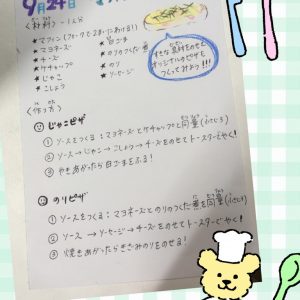 9月24日
〈材料〉一人分
★マフィン(フォークで2まいにわける!!)
★マヨネーズ ★白ごま
★チーズ ★のりのつくだ煮
★ケチャップ ★のり
★じゃこ ★ソーセージ
★こしょう
すきな具材をのせて
オリジナルのピザも
つくってみよう!!!
〈作り方〉
じゃこピザ
① ソースをつくる:マヨネーズとケチャップを同量(ふさじ)
② ソース→じゃこ→こしょう→チーズをのせてトースターでやく!
③ やきあがったら白ごまをふる!
のりピザ
① ソースをつくる:マヨネーズとのりのつくだ煮を同量(ふさじ)
② ソース→ソーセージ→チーズをのせてトースターでやく!
③ 焼きあがったらきざみのりをのせる!